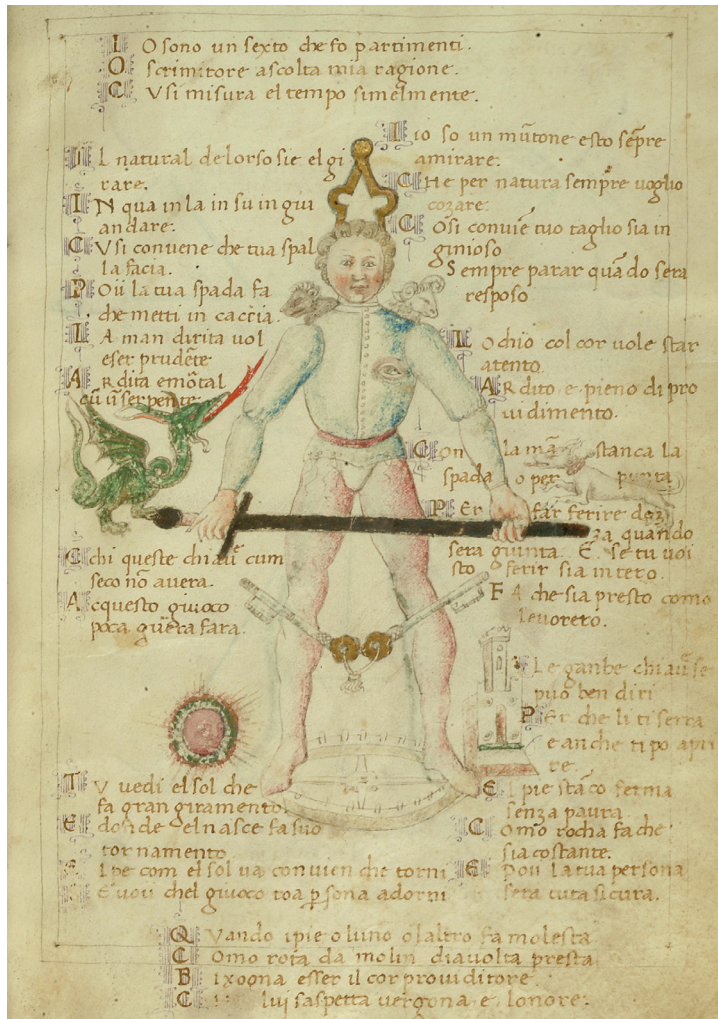 IO sono un sexto che fo partimenti.
O scrimitore ascolta mia ragione.
Cusi misura el tempo simelmente.
DEl natural de lorso sie el gi
rare.
IN qua in la in su in giu
andare.
CVsi convene che tua spal
la facia.
POii la tua spada fa
che metti in caccia.
LA man dirita vol
eser prudēte
ARdita emōtal
cū ū serpente
Iio so un mūtone e sto sēpre
amirare.
CHe per natura sempre voglio
cozare.
COsi convie tuo taglio sia in
ginioso
Sempre parar quādo sera
resposo
LOchio col cor vole star
atento.
ARdito e pieno di pro
vidimento.
COn la mā stanca la
spada o per punta
PEr far ferire doz
za quando
sera giunta. E se tu voi
sto ferir sia intero.
FA che sia presto como
levorero.
Chi queste chiavi cum
seco nō avera.
Acquesto giuoco
poca guera fara.
Le ganbe chiavi se
puo ben diri
PEr che li ti serra
e anche ti po apri
re.
TV vedi el sol che
fa gran giramento
E donde el nasce fa suo
tornamento
Ipe com el sol va convien che torni
E voii chel giuoco toa psona adorni
El pie stāco ferma
senza paura.
Como rocha fa che
sia costante.
E Poii la tua persona
sera tuta sicura.
QVando ipie o luno o laltro fa molesta
COmo rota da molin dia volta presta
BIxogna esser il cor providitore
C lui saspetta vergona e lonore.